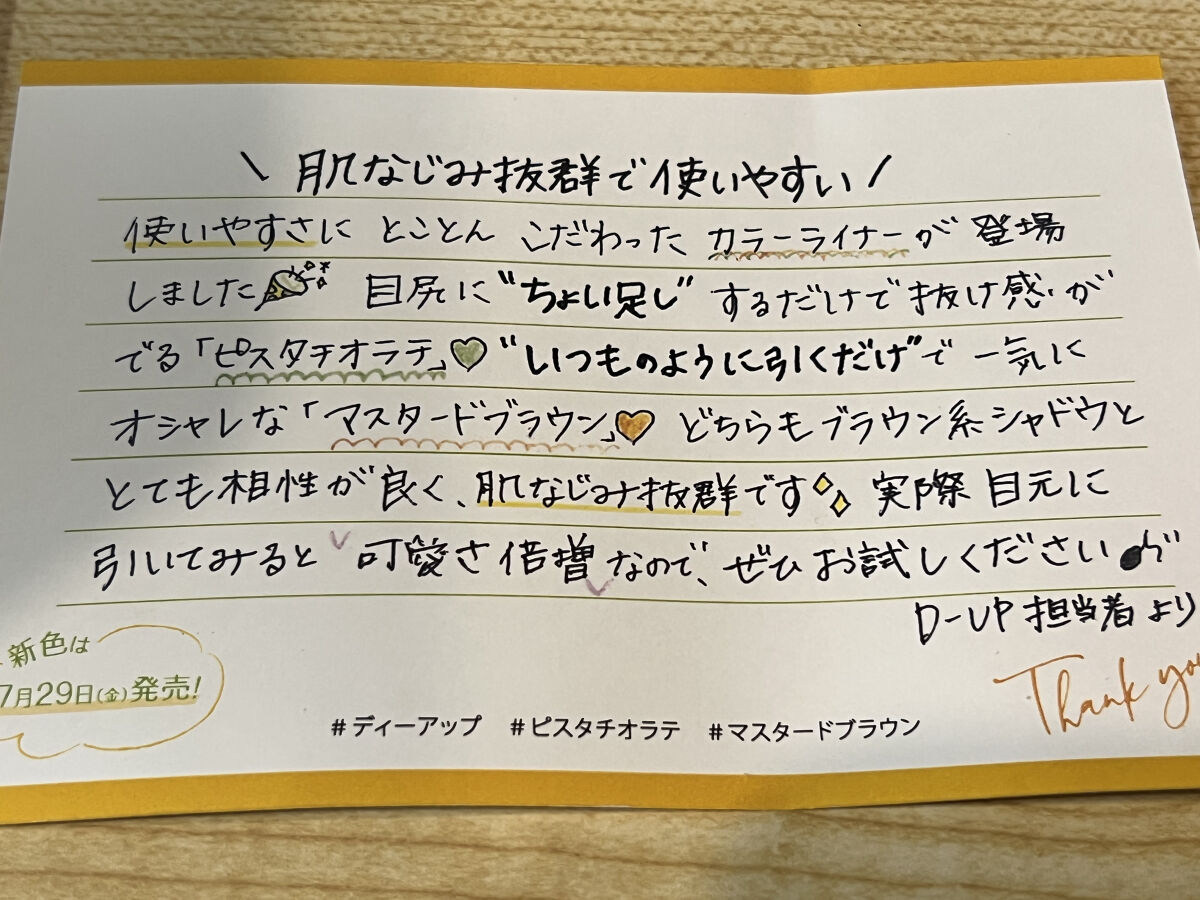 \ 肌なじみ抜群で使いやすい /
使いやすさに とことん こだわった カラーライナーが 登場
しました 目尻に "ちょい足し" するだけで 抜け感が
でる「ピスタチオラテ」 "いつものように引くだけ"で 一気に
オシャレな「マスタードブラウン」 どちらもブラウン系シャドウと
とても相性が良く、肌なじみ抜群です 実際 目元に
引いてみると 可愛さ倍増なので、ぜひお試しください
D-UP 担当者より
新色は
7月29日(金)発売!
Thank you
#ディーアップ #ピスタチオラテ #マスタードブラウン